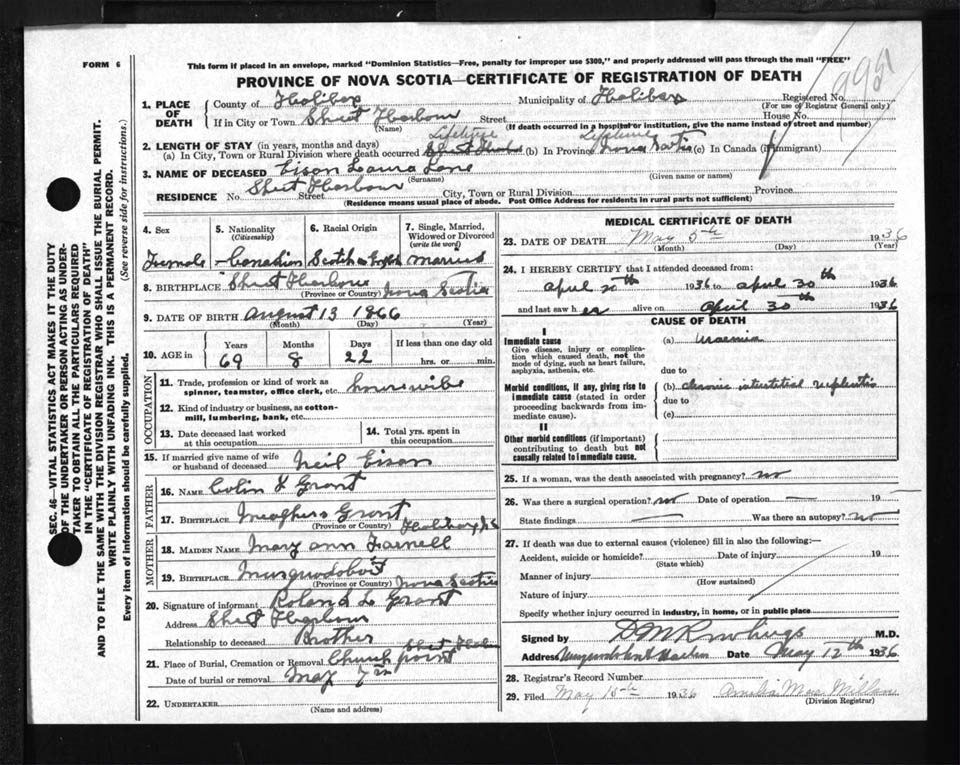 FORM 6
This form if placed in an envelope, marked "Dominion Statistics—Free, penalty for improper use $300," and properly addressed will pass through the mail "FREE"
PROVINCE OF NOVA SCOTIA—CERTIFICATE OF REGISTRATION OF DEATH
SEC. 46—VITAL STATISTICS ACT MAKES IT THE DUTY
OF THE UNDERTAKER OR PERSON ACTING AS UNDER-
TAKER TO OBTAIN ALL THE PARTICULARS REQUIRED
IN THE "CERTIFICATE OF REGISTRATION OF DEATH"
AND TO FILE THE SAME WITH THE DIVISION REGISTRAR WHO SHALL ISSUE THE BURIAL PERMIT.
WRITE PLAINLY WITH UNFADING INK. THIS IS A PERMANENT RECORD.
Every item of information should be carefully supplied. (See reverse side for instructions.)
1. PLACE OF DEATH County of Halifax Municipality of Halifax Registered No.
(For use of Registrar General only)
If in City or Town Sheet Harbour Street House No.
(Name) (If death occurred in a hospital or institution, give the name instead of street and number)
2. LENGTH OF STAY (in years, months and days) Lifetime Lifetime
(a) In City, Town or Rural Division where death occurred Sheet Harbour (b) In Province Nova Scotia (c) In Canada (if immigrant)
3. NAME OF DECEASED Eison Laura Jane
(Surname) (Given name or names)
RESIDENCE No. Sheet Harbour Street City, Town or Rural Division Province
(Residence means usual place of abode. Post Office Address for residents in rural parts not sufficient)
4. Sex 5. Nationality (Citizenship) 6. Racial Origin 7. Single, Married, Widowed or Divorced (write the word)
Female Canadian Scotch English Married
8. BIRTHPLACE Sheet Harbour Nova Scotia
(Province or Country)
9. DATE OF BIRTH August 13 1866
(Month) (Day) (Year)
10. AGE in Years Months Days If less than one day old
69 8 22 hrs. or min.
OCCUPATION
11. Trade, profession or kind of work as spinner, teamster, office clerk, etc. housewife
12. Kind of industry or business, as cotton-mill, lumbering, bank, etc.
13. Date deceased last worked at this occupation
14. Total yrs. spent in this occupation
15. If married give name of wife or husband of deceased Neil Eison
FATHER
16. Name Colin Grant
17. Birthplace Meaghers Grant Halifax, N.S.
(Province or Country)
MOTHER
18. Maiden Name Mary Ann Farnell
19. Birthplace Musquodoboit Nova Scotia
(Province or Country)
20. Signature of informant Roland L Grant
Address Sheet Harbour
Relationship to deceased Brother
21. Place of Burial, Cremation or Removal Church point Sheet Harbour
Date of burial or removal May 7th
22. UNDERTAKER
(Name and address)
MEDICAL CERTIFICATE OF DEATH
23. DATE OF DEATH May 5th 1936
(Month) (Day) (Year)
24. I HEREBY CERTIFY that I attended deceased from:
April 30th 1936 to April 30th 1936
and last saw her alive on April 30th 1936
CAUSE OF DEATH
I
Immediate cause
Give disease, injury or complication which caused death, not the mode of dying, such as heart failure, asphyxia, asthenia, etc.
(a) Uraemia
due to
Morbid conditions, if any, giving rise to immediate cause (stated in order proceeding backwards from immediate cause).
(b) chronic interstitial nephritis
due to
(c)
II
Other morbid conditions (if important) contributing to death but not causally related to immediate cause.
25. If a woman, was the death associated with pregnancy? no
26. Was there a surgical operation? no Date of operation — 19 —
State findings — Was there an autopsy? no
27. If death was due to external causes (violence) fill in also the following:—
Accident, suicide or homicide? Date of injury 19
(State which)
Manner of injury
(How sustained)
Nature of injury
Specify whether injury occurred in industry, in home, or in public place
Signed by D M Rawlings M.D.
Address Musquodoboit Harbour Date May 12th 1936
28. Registrar's Record Number
29. Filed May 15th 1936 Amelia MacMillan
(Division Registrar)